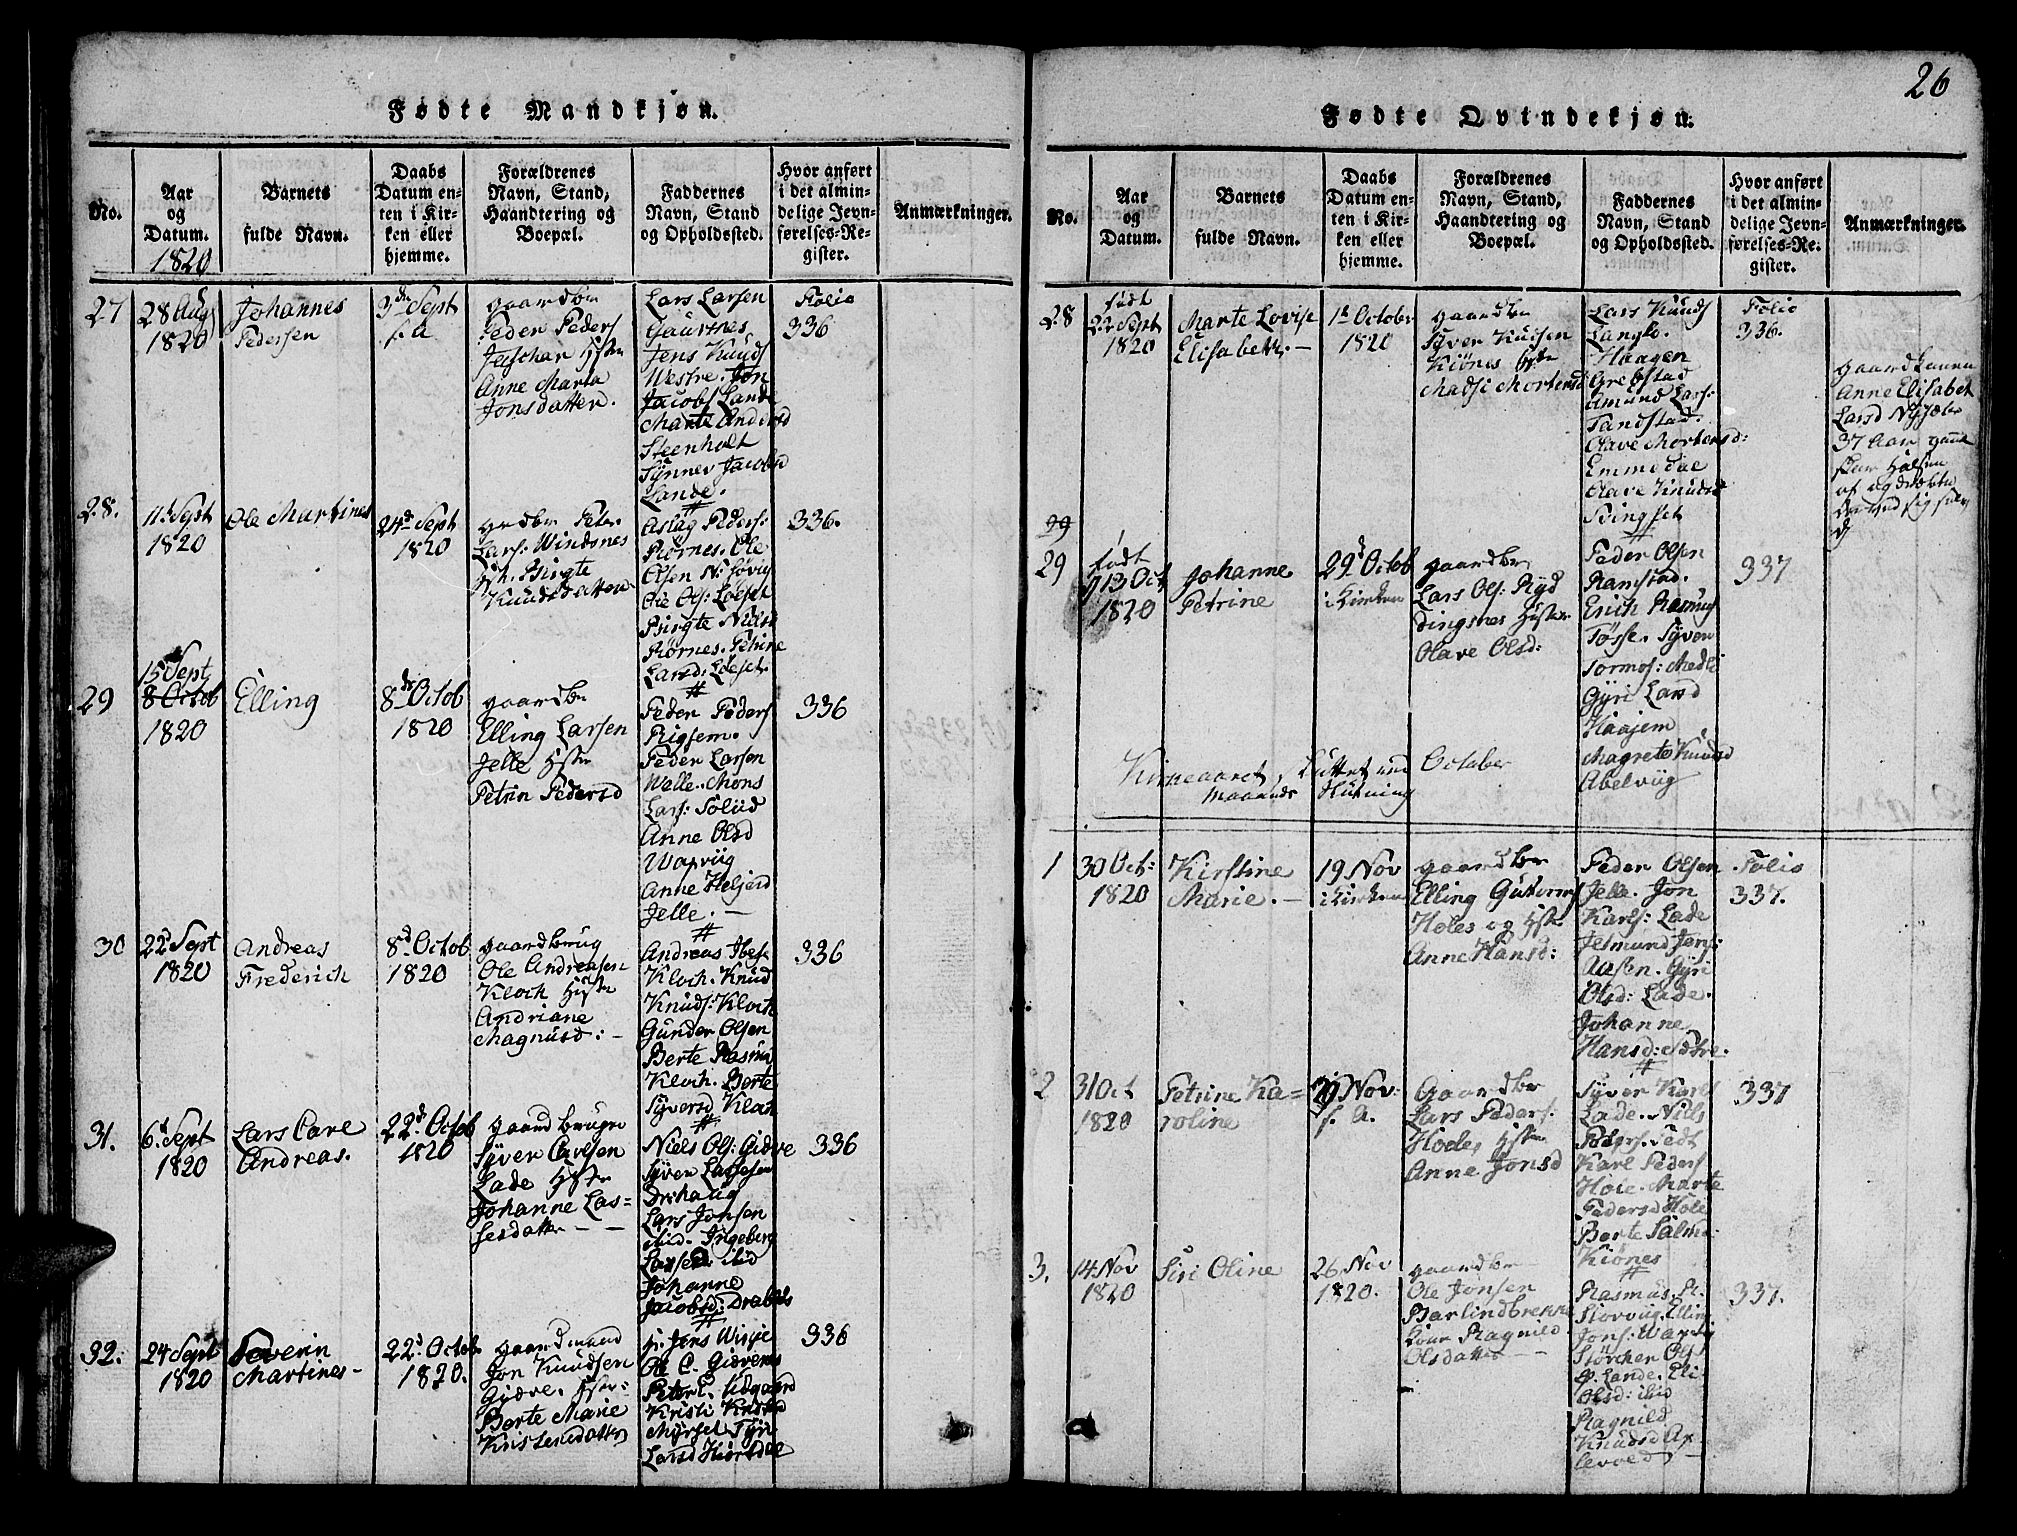 Fødte Mandkjøn.
No.
Aar
og
Datum.
1820
Barnets
fulde Navn.
Daabs
Datum en-
ten i Kir-
ken eller
hjemme.
Forældrenes
Navn, Stand,
Haandtering og
Boepæl.
Faddernes
Navn, Stand
og Opholdssted.
Hvor anført
i det almin-
delige Jevn-
førelses-Re-
gister.
Anmærkninger.
27
28 Aug
1820
Johannes
Pedersen
3die Sept
s. a
gaardbr
Peder Peders
Hster
Anne Marta
Jonsdatter.
Lars Larsen
Gaustnes
Jens Knuds
Westre. Jon
Jacobs Lande
Marte Andersd
Steenholt
Synnev Jacobsd
Lande.
Folio
336
28.
11te Sept
1820
Ole Martines
24de Sept
1820
grdbr Peter
Lars: Windsnes
Hst. Birgte
Knudsdatter
Aslag Peders:
Rørnes. Ole
Olsen N: søvig
Ole Ols: Løset
Birgte Nielsd
Rørnes. Petrine
Larsd: Løset.
336.
29
15 Sept
8 Octob
1820
Elling
8de Octob
1820
gaardbr
Elling Larsen
Jelle Hster
Petrin Pedersd
Peder Peders
Rigsem.
Peder Larsen
Welle. Mons
Lars: Solüd
Anne Olsd
Wapviig
Anne Heljesd
Jelle. —
336
30
22d Sept
1820
Andreas
Frederich
8d Octob
1820
gaardbrug
Ole Andreasen
Kloch Hster
Andriane
Magnusd: —
Andreas Ibes
Kloch. Knud
Knuds: Kloch
Gunder Olsen
Berte Rasmu
Kloch. Berte
Syversd Kloch
336
31.
6d Sept
1820
Lars Carl
Andreas.
22d Octob
1820
gaardbruger
Syver Carlsen
Lade Hster
Johanne Las-
sesdatter — —
Niels Ols: Giæve
Syver Lassesen
Drehaug
Lars Jonsen
ibid. Ingeborg
Larsen ibid
Johanne
Jacobsd: Drabløs
336
32.
24 Sept
1820
Severin
Martines-
22d Octob
1820.
gaardmand
Jon Knudsen
Giæve. Hster:
Berte Marie
Kristensdatter
hr Jens Wisje
Ole C. Giævenes
Peter L. Ødgaard
Kristi Knudsd
Myrset Syn
Larsd Hiørsdal
336
26
Fødte Qvindekjøn.
No.
Aar
og
Datum.
Barnets
fulde Navn.
Daabs
Datum en-
ten i Kir-
ken eller
hjemme.
Forældrenes
Navn, Stand,
Haandtering og
Boepæl.
Faddernes
Navn, Stand
og Opholdssted.
Hvor anført
i det almin-
delige Jevn-
førelses-Re-
gister.
Anmærkninger.
28
født
22 Sept
1820
Marte Lovise
Elisabeth. —
1te October
1820
gaardbr
Syver Knusen
Kiønes Hster
Madsi Mortensd
Lars Knuds
Langlo.
Haagen
Grebstad
Amund Lars:
Tandstad.
Olave Mortensd:
Emmedal
Olave Knudsd
Bingset
Folio
336.
gaardkonen
Anne Elisabet
Larsd
37 Aar gaml
skar Halsen
af og dræbte
derved sig selv
29
29
født
13 Oct
1820
Johanne
Petrine
29d Octob
i Kirken
gaardbr
Lars Ols: Ryd
dingsnes Hster
Olave Olsd:
Peder Olsen
Ramstad.
Erich Rasmus
Tøsse. Syver
Tormos: Medli
Gyri Larsd
Haajem
Magrete Knudsd
Abelviig
337
October
Maaneds
1
30 Oct:
1820
Kirstine
Marie. —
19 Nov
i Kirken
gaardbr
Elling Guttorms
Holes og Hster
Anne Hansd:
Peder Olsen
Jelle. Jon
Karls: Lade
Jetmund Jons:
Aasen. Gyri
Olsd: Lade.
Johanne
Hansd: Sætre.
Folio
337.
2
31 Oct
1820
Petrine Ka-
roline
Nov:
s. a.
Gaardbr
Lars Peders:
Hole, Hster
Anne Jonsd
Syver Karls
Lade. Niels
Peders. Sedt
Karl Peders
Hole. Marte
Pedersd Hole
Berte Salmo:
Kiønes
337
3.
14 Nov
1820
Siri Oline
26 Nov
1820.
gaardbr
Ole Jonsen
Barlindbrenne
Ragnild
Olsdatter — —
Rasmus P.
Storvig. Elling
Jons: Wapvig
Størcher Ols
P. Lande. Eli
Olsd: ibid
Ragnild
Knudsd Ax-
levold, —
337.